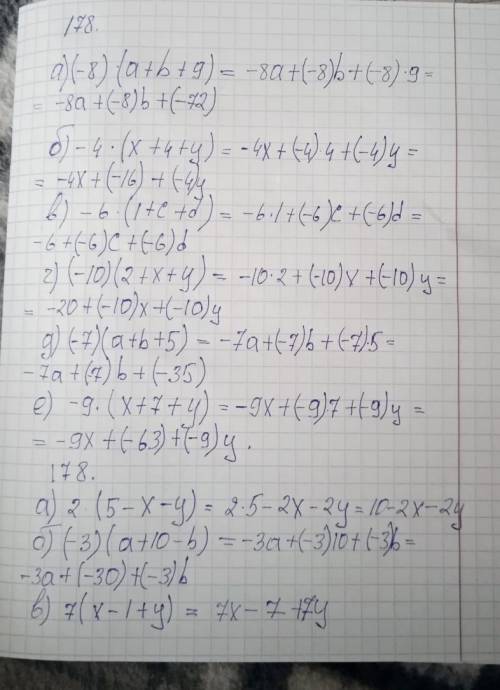 178.
а) (-8) · (a+b+9) = -8a+(-8)b+(-8)·9=
= -8a+(-8)b+(-72)
б) -4 · (x+4+y) = -4x+(-4)·4+(-4)y =
= -4x+(-16)+(-4)y
в) -6 · (1+c+d) = -6·1+(-6)c+(-6)d =
-6+(-6)c+(-6)d
г) (-10)(2+x+y) = -10·2+(-10)x+(-10)y=
= -20+(-10)x+(-10)y
д) (-7)(a+b+5) = -7a+(-7)b+(-7)·5=
-7a+(-7)b+(-35)
е) -9 · (x+7+y) = -9x+(-9)7+(-9)y =
= -9x+(-63)+(-9)y.
178.
а) 2 · (5-x-y) = 2·5-2x-2y=10-2x-2y
б) (-3)(a+10-b) = -3a+(-3)10+(-3)b=
-3a+(-30)+(-3)b
в) 7(x-1+y) = 7x-7+7y